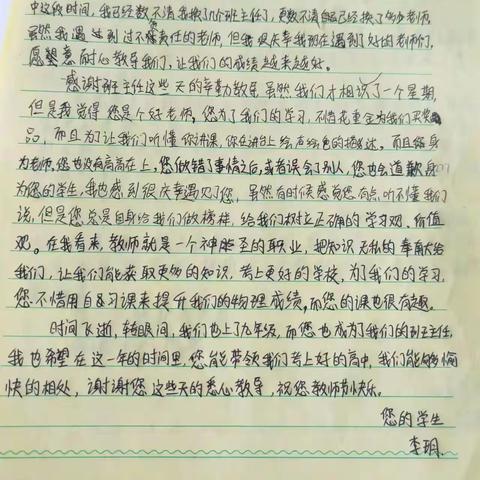 中这段时间,我已经数不清我换了几个班主任了,更数不清自己已经换了多少老师,
虽然我遇过到过不懂责任的老师,但我很庆幸我现在遇到了好的老师们,
愿意耐心教导我们,让我们的成绩越来越好。
感谢班主任这些天的辛勤教导,虽然我们才相识了一个星期,
但是我觉得您是个好老师,您为了我们的学习,不惜花重金为我们买奖
品,而且为了让我们听懂你讲课,你在讲台上绘声绘色的描述。而且您身
为老师,您也没有高高在上,您做错了事情之后,或者误会了别人,您也会道歉,身
为您的学生,我也感到很庆幸遇见了您,虽然有时候感觉您有点听不懂我们
说,但是您总是自身给我们做榜样,给我们树立正确的学习观,价值
观。在我看来,教师就是一个神圣的职业,把知识无私的奉献给
我们,让我们能获取更多的知识,考上更好的学校,为了我们的学习,
您不惜用自习课来提升我们的物理成绩,而您的课也很有趣。
时间飞逝,转眼间,我们也上了九年级,而您也成为了我们的班主任,
我也希望在这一年的时间里,您能带领我们考上好的高中,我们能够愉
快的相处,谢谢您这些天的悉心教导,祝您教师节快乐。
您的学生
李玥.